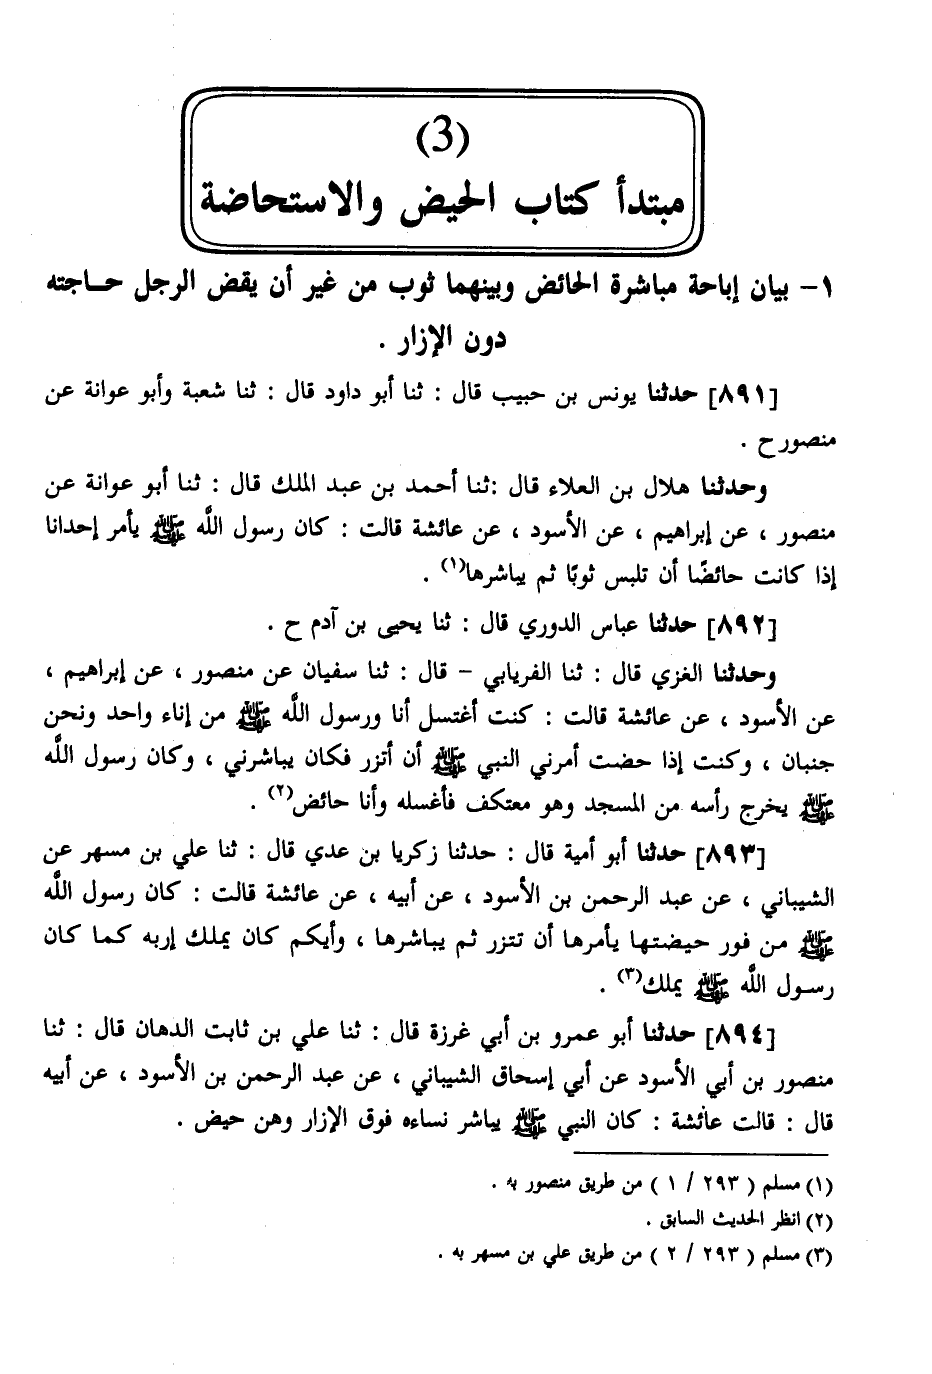 (3)
مبتدأ كتاب الحيض والاستحاضة
١- بيان إباحة مباشرة الحائض وبينهما ثوب من غير أن يقض الرجل حـاجته
دون الإزار .
[٨٩١] حدثنا يونس بن حبيب قال : ثنا أبو داود قال : ثنا شعبة وأبو عوانة عن
منصور ح .
وحدثنا هلال بن العلاء قال :ثنا أحمد بن عبد الملك قال : ثنا أبو عوانة عن
منصور ، عن إبراهيم ، عن الأسود ، عن عائشة قالت : كان رسول اللَّه ﷺ يأمر إحدانا
إذا كانت حائضًا أن تلبس ثوبًا ثم يباشرها(١) .
[٨٩٢] حدثنا عباس الدوري قال : ثنا يحيى بن آدم ح .
وحدثنا الغزي قال : ثنا الفريابي - قال : ثنا سفيان عن منصور ، عن إبراهيم ،
عن الأسود ، عن عائشة قالت : كنت أغتسل أنا ورسول اللَّه ﷺ من إناء واحد ونحن
جنبان ، وكنت إذا حضت أمرني النبي ﷺ أن أتزر فكان يباشرني ، وكان رسول اللَّه
ﷺ يخرج رأسه من المسجد وهو معتكف فأغسله وأنا حائض(٢) .
[٨٩٣] حدثنا أبو أمية قال : حدثنا زكريا بن عدي قال : ثنا علي بن مسهر عن
الشيباني ، عن عبد الرحمن بن الأسود ، عن أبيه ، عن عائشة قالت : كان رسول اللَّه
ﷺ من فور حيضتها يأمرها أن تتزر ثم يباشرها ، وأيكم كان يملك إربه كما كان
رسول اللَّه ﷺ يملك(٣) .
[٨٩٤] حدثنا أبو عمرو بن أبي غرزة قال : ثنا علي بن ثابت الدهان قال : ثنا
منصور بن أبي الأسود عن أبي إسحاق الشيباني ، عن عبد الرحمن بن الأسود ، عن أبيه
قال : قالت عائشة : كان النبي ﷺ يباشر نساءه فوق الإزار وهن حيض .
(١) مسلم ( ٢٩٣ / ١ ) من طريق منصور به .
(٢) انظر الحديث السابق .
(٣) مسلم ( ٢٩٣ / ٢ ) من طريق علي بن مسهر به .